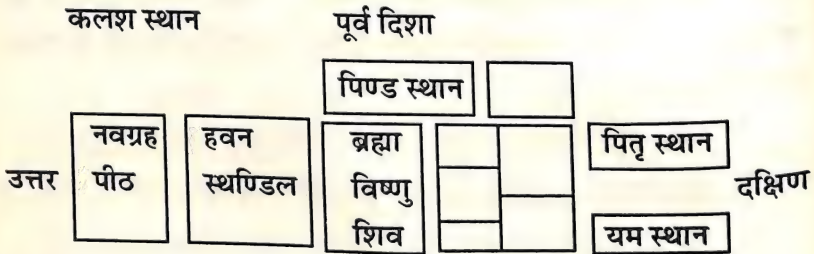 कलश स्थान
पूर्व दिशा
पिण्ड स्थान
उत्तर
नवग्रह
पीठ
हवन
स्थण्डिल
ब्रह्मा
विष्णु
शिव
पितृ स्थान
यम स्थान
दक्षिण